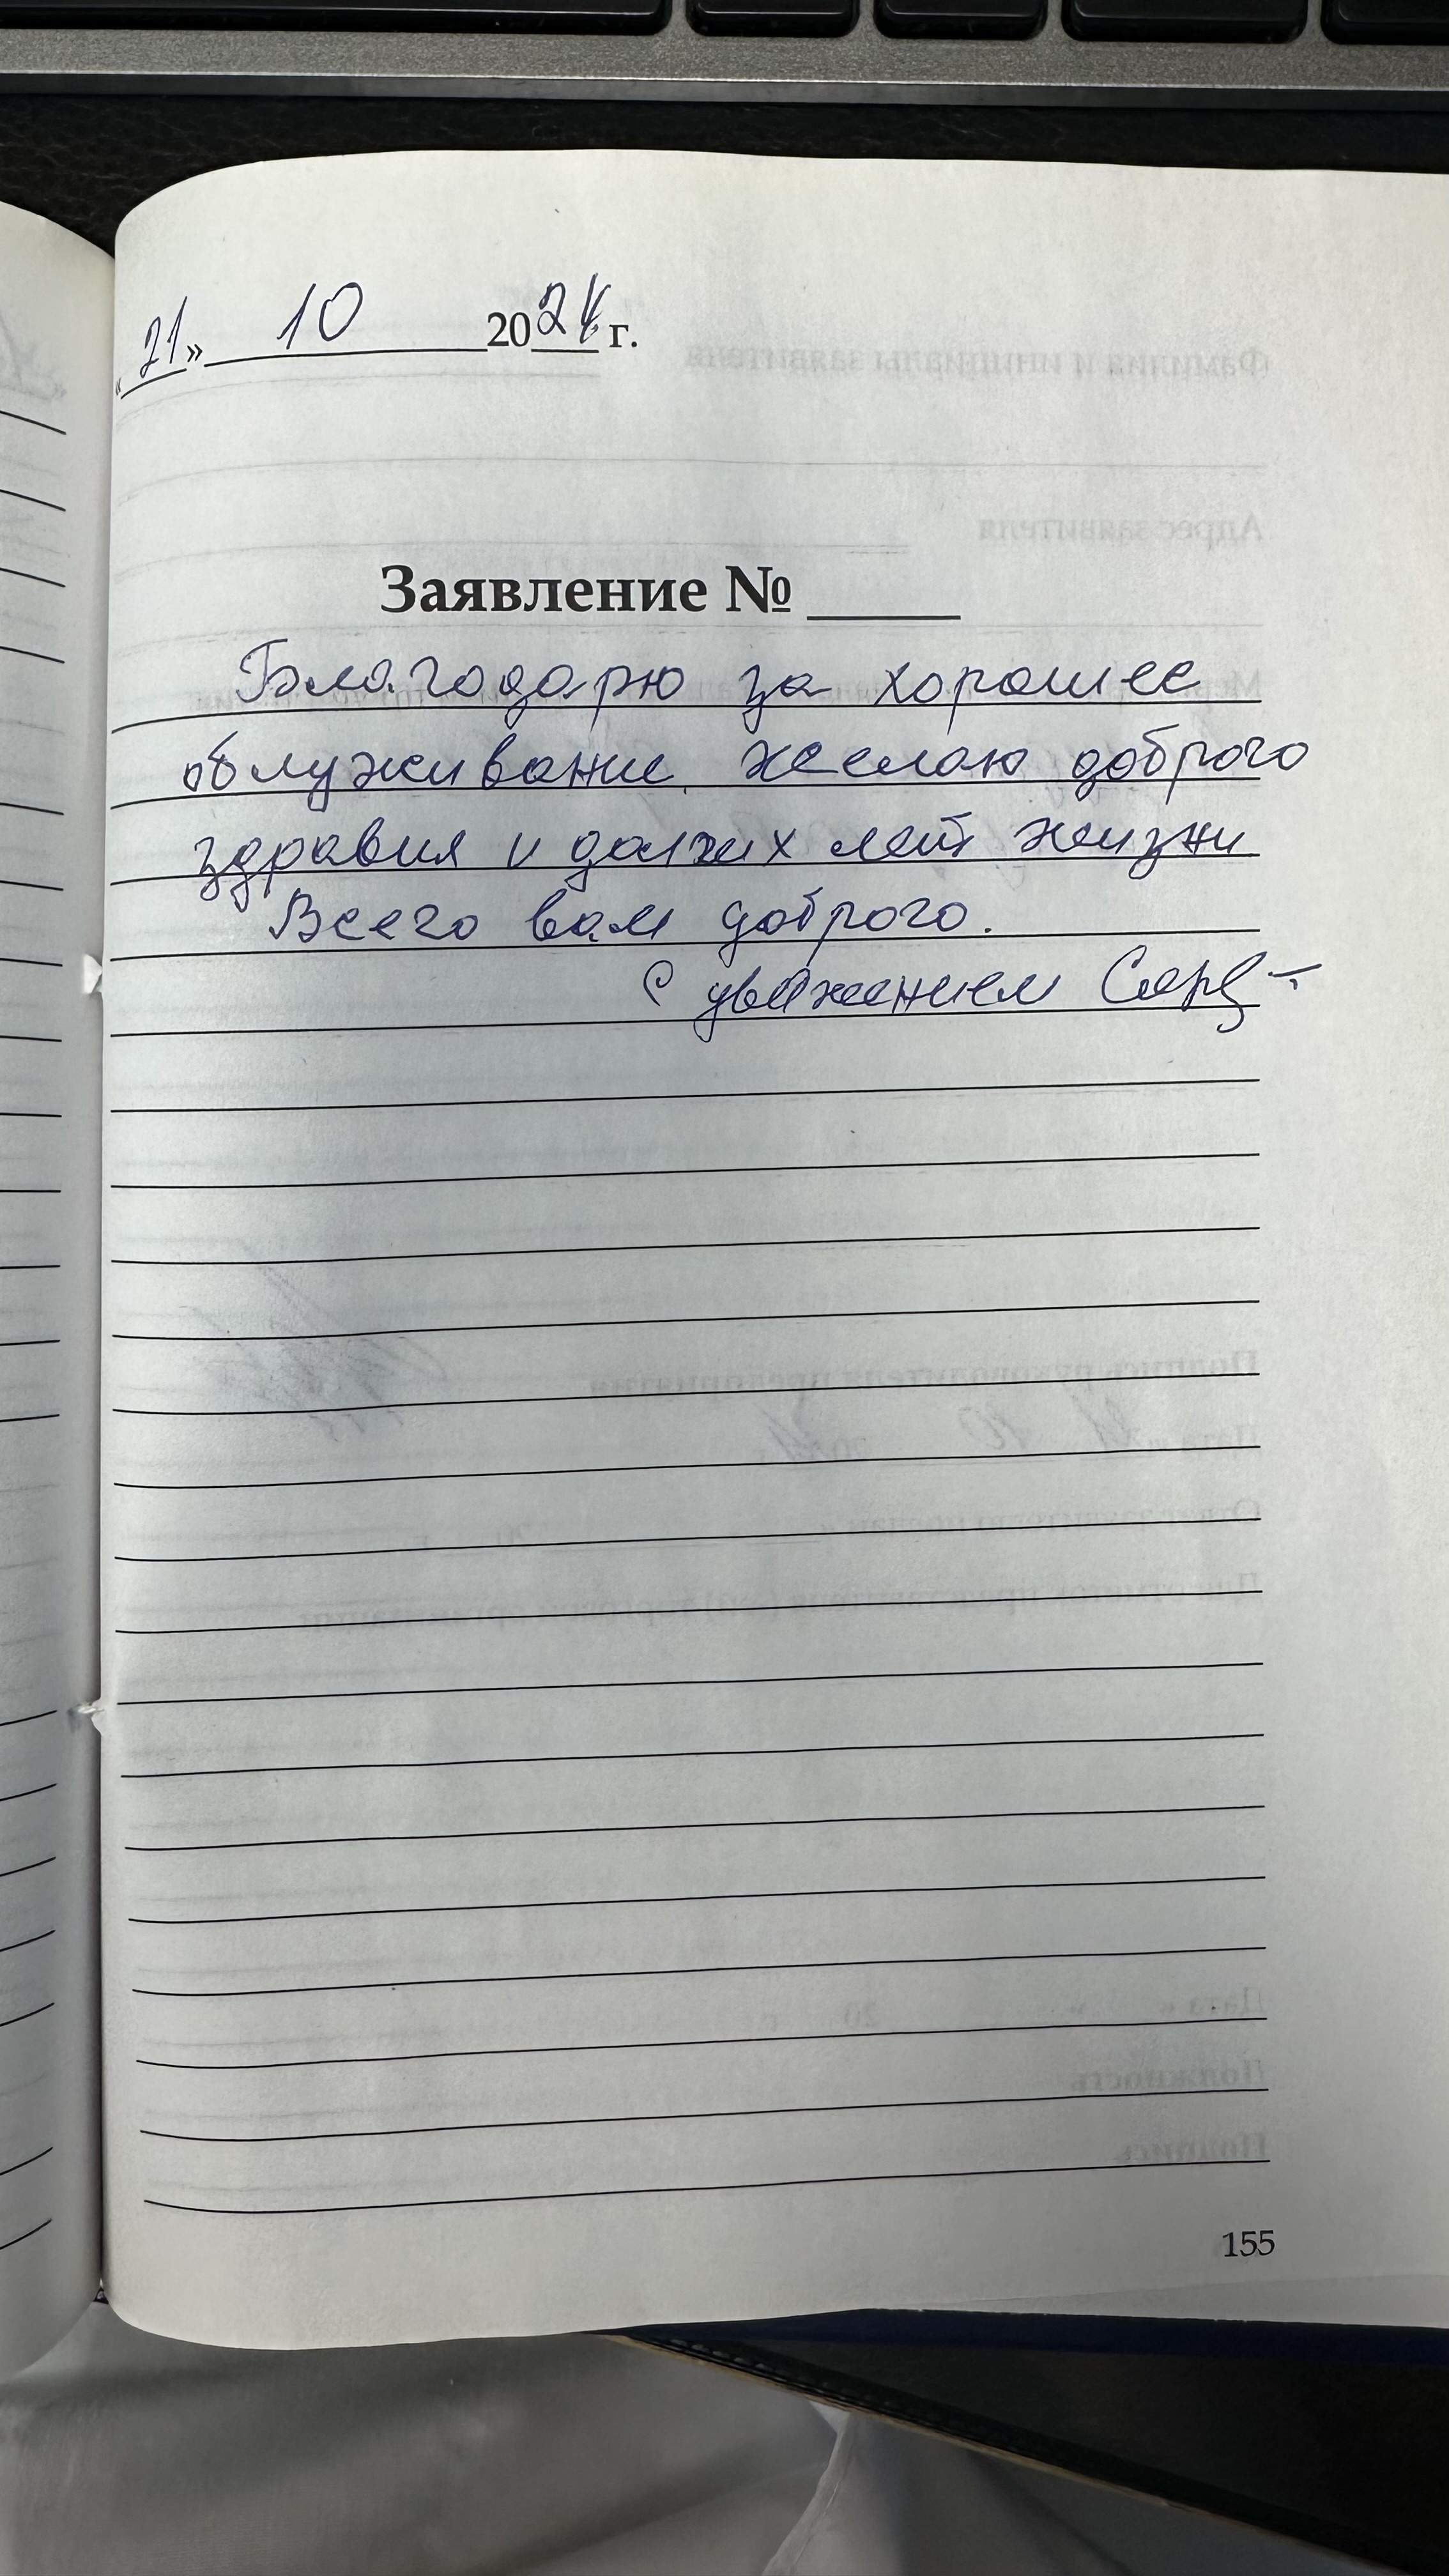 «21» 10 2024 г.
Заявление № ____
Благодарю за хорошее
облуживание, желаю доброго
здравия и долгих лет жизни
Всего вам доброго.
С уважением
155